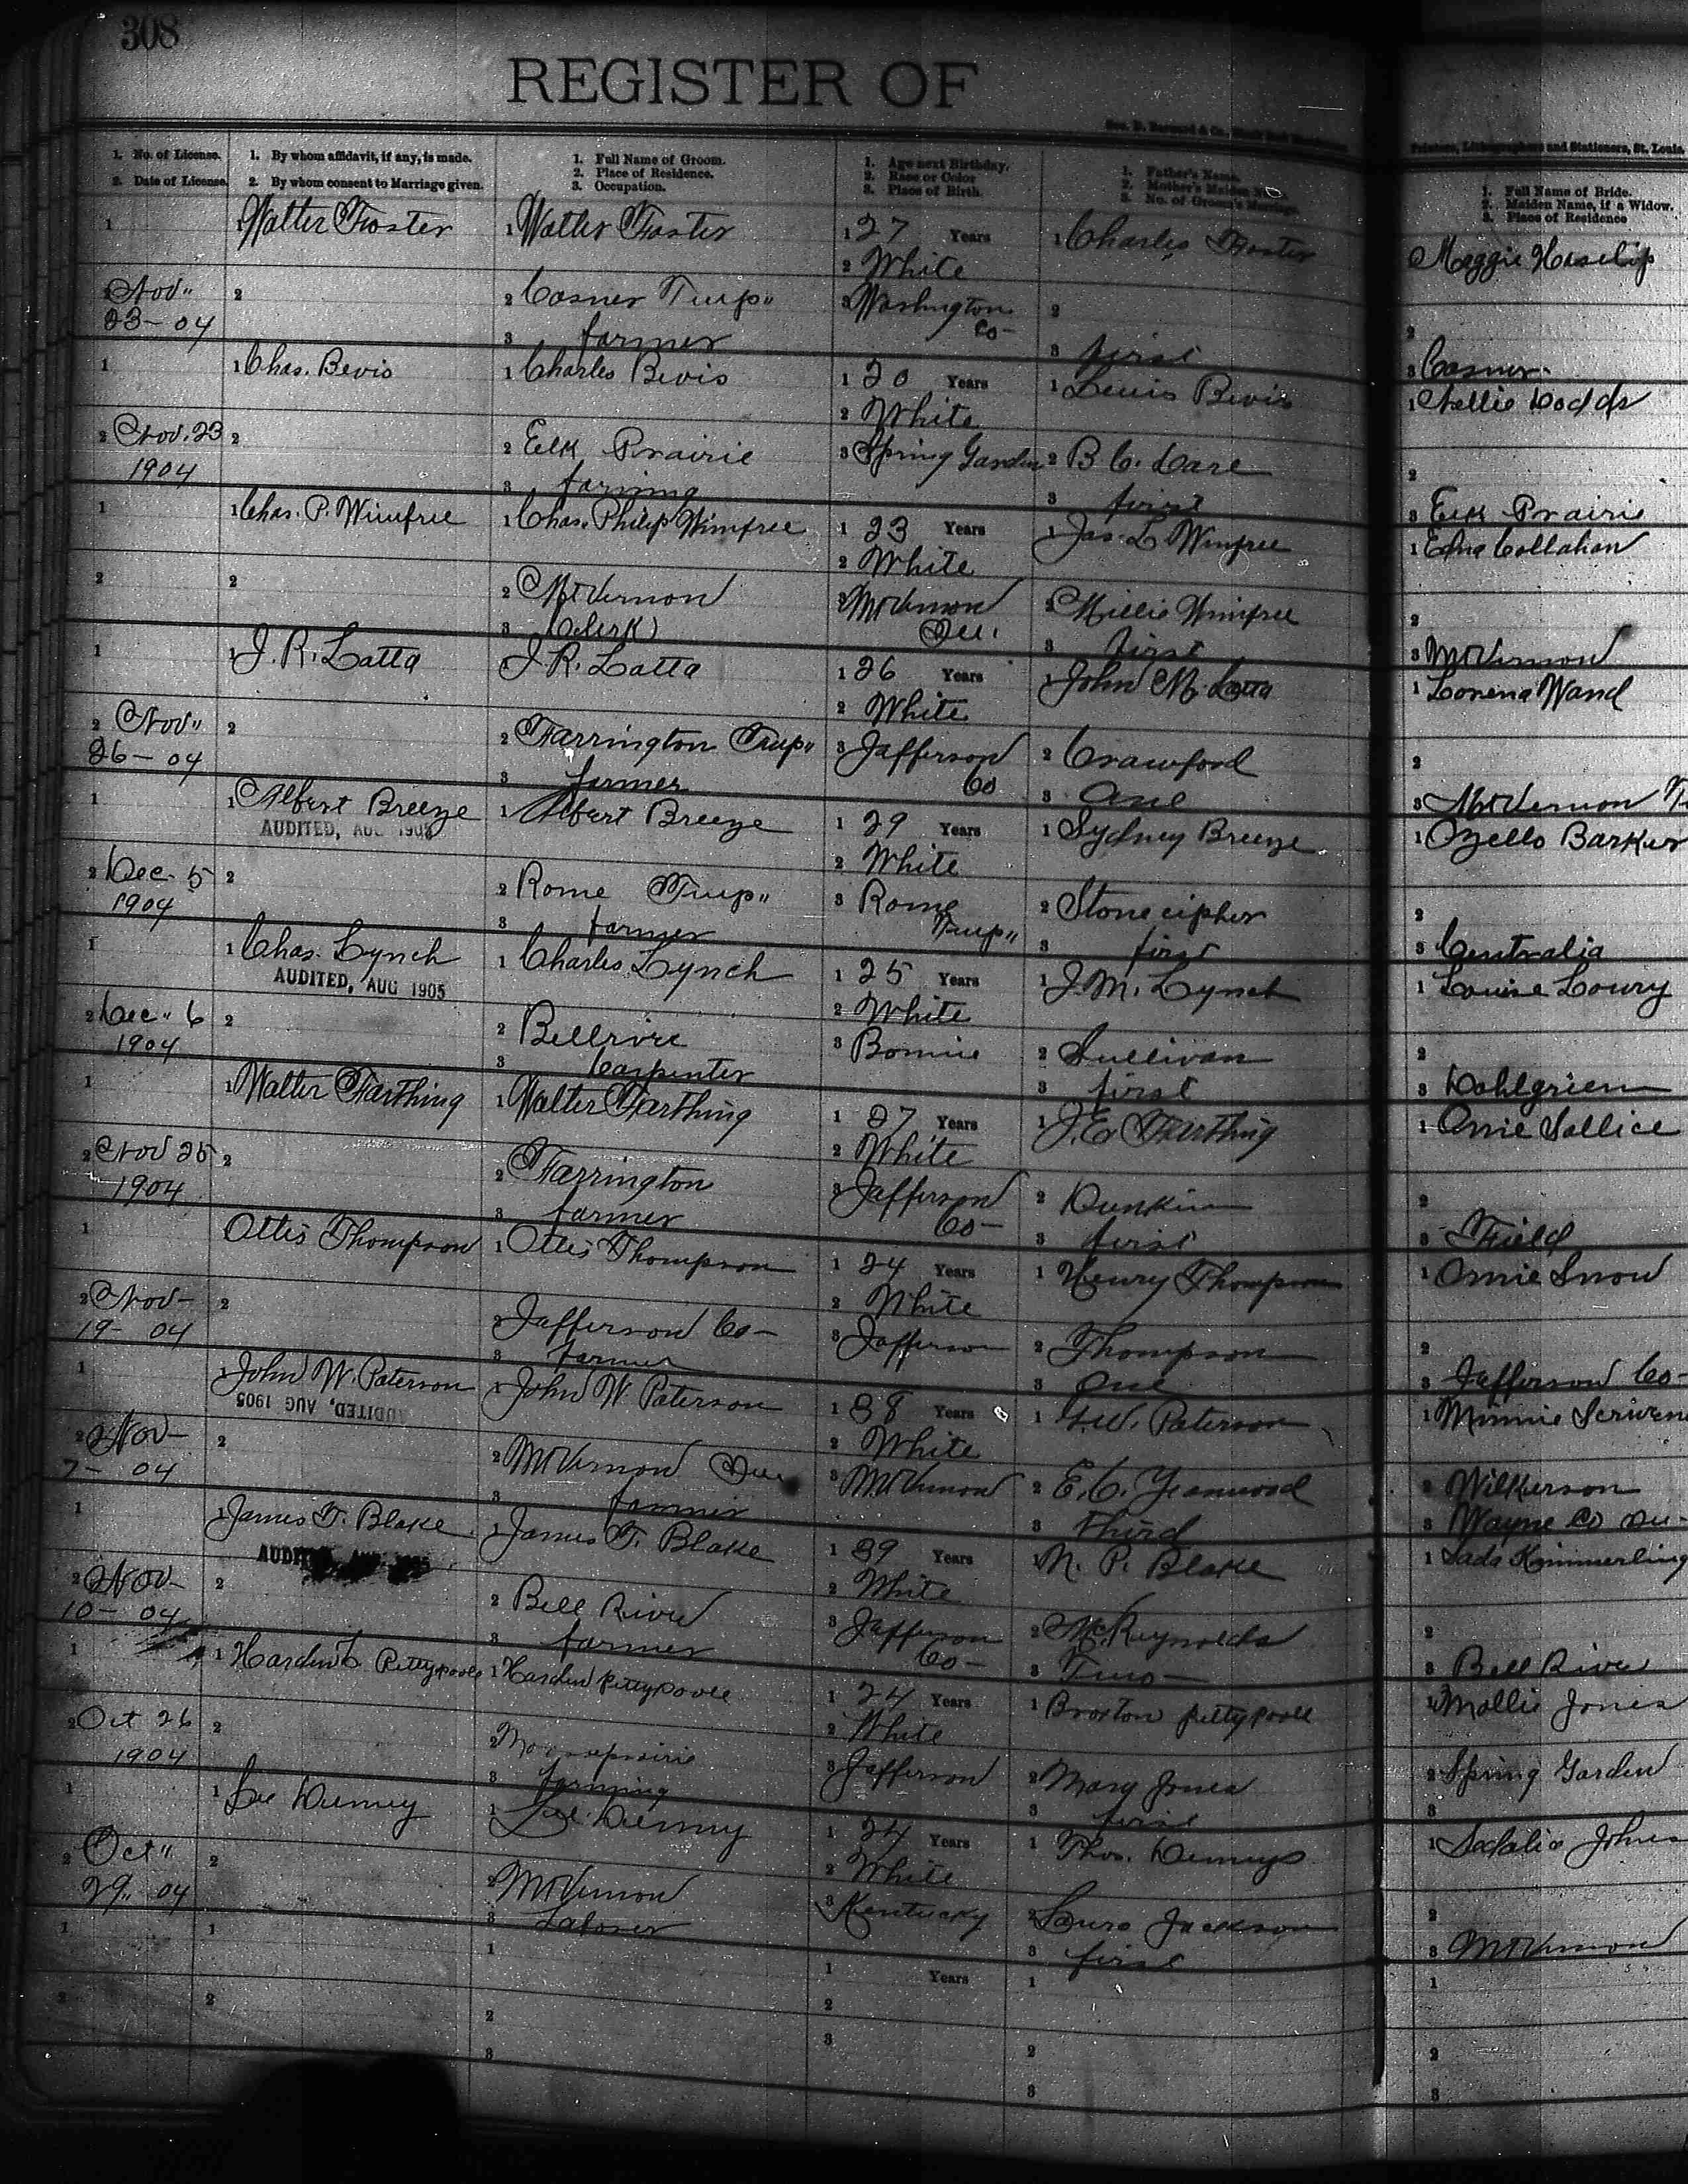 308
REGISTER OF
Printers, Lithographers and Stationers, St. Louis.
1. No. of License.
2. Date of License.
1. By whom affidavit, if any, is made.
2. By whom consent to Marriage given.
1. Full Name of Groom.
2. Place of Residence.
3. Occupation.
1. Age next Birthday.
2. Race or Color
3. Place of Birth.
1. Father's Name.
2. Mother's Maiden
3. No. of Groom's Marriage.
1. Full Name of Bride.
2. Maiden Name, if a Widow.
3. Place of Residence
1
1 Walter Foster
1 Walter Foster
1 27 Years
1 Charles Foster
Maggie
2 White
2 Nov"
23-04
2
2 Casner Twp"
3 Washington
Co-
2
2
3 farmer
3 first
3 Casner.
1
1 Chas. Bevis
1 Charles Bevis
1 20 Years
1 Lewis Bevis
1 Nellie Dodds
2 White
2 Nov. 23
1904
2
2 Elk Prairie
3 Spring Garden
2 B C. Dare
2
3 farming
3 first
3 Elk Prairie
1
1 Chas. P. Wimfree
1 Chas. Philip Wimfree
1 23 Years
1 Jas. L Winfree
1 Edna Callahan
2 White
2
2
2 Mt Vernon
3 Mt Vernon
Ill.
2 Millie Wimfree
2
3 Clerk
3 first
3 Mt Vernon
1
1 J. R. Latta
1 J. R. Latta
1 26 Years
1 John M. Latta
1 Lorena Wand
2 White
2 Nov"
26-04
2
2 Farrington Twp"
3 Jefferson
Co
2 Crawford
2
3 farmer
3 One
3 Mt Vernon
1
1 Albert Breeze
AUDITED, AUG 1905
1 Albert Breeze
1 29 Years
1 Sydney Breeze
1 Ozello Barker
2 White
2 Dec. 5
1904
2
2 Rome Twp"
3 Rome
Twp"
2 Stonecipher
2
3 farmer
3 first
3 Centralia
1
1 Chas. Lynch
AUDITED, AUG 1905
1 Charles Lynch
1 25 Years
1 J. M. Lynch
1 Louise Lowry
2 White
2 Dec. 6
1904
2
2 Bellrive
3 Bonnie
2 Sullivan
2
3 Carpenter
3 first
3 Dahlgrien
1
1 Walter Farthing
1 Walter Farthing
1 27 Years
1 J. E. Farthing
1 Omie Sallice
2 White
2 Nov 25
1904
2
2 Farrington
3 Jefferson
Co-
2 Dunkin
2
3 farmer
3 first
3 Field
1
Ottis Thompson
1 Ottis Thompson
1 24 Years
1 Henry Thompson
1 Omie Snow
2 White
2 Nov-
19- 04
2
2 Jefferson Co-
3 Jefferson
2 Thompson
2
3 farmer
3 One
3 Jefferson Co-
1
1 John W. Paterson
AUDITED, AUG 1905
1 John W. Paterson
1 38 Years
1 Paterson
1 Minnie
2 White
2 Nov-
7- 04
2
2 Mt Vernon Ill
3 Mt Vernon
2 E. C. Yearwood
2 Wilkerson
3 farmer
3 third
3 Wayne Co Ill-
1
1 James T. Blake
1 James T. Blake
1 39 Years
1 N. P. Blake
1 Sada Kimmerling
2 White
2 Nov-
10- 04
2
2 Bell River
3 Jefferson
Co-
2 McReynolds
2
3 farmer
3 Two-
3 Bell River
1
1 Harden L Pettypoole
1 Harden Pettypoole
1 24 Years
1 Broxton pettypoole
1 Mollie Jones
2 White
2 Oct 26
1904
2
2 Mooreprairie
3 Jefferson
2 Mary Jones
2 Spring Garden
3 farming
3 first
3
1
1 Lee Denny
1 Lee Denny
1 24 Years
1 Thos. Denny
1 Sedalia
2 White
2 Oct"
29" 04
2
2 Mt Vernon
3 Kentucky
2 Laura Jackson
2
3 Laborer
3 first
3 Mt Vernon
1
1
1
1 Years
1
1
2
2
2
2
2
2
3
3
3
3